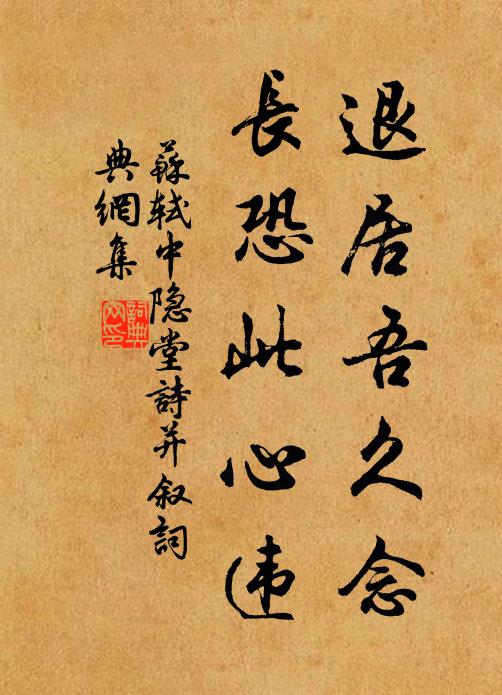 退居吾久念
長恐此心违
蘇轼中隐堂詩并叙詞
典網集
詞典网印